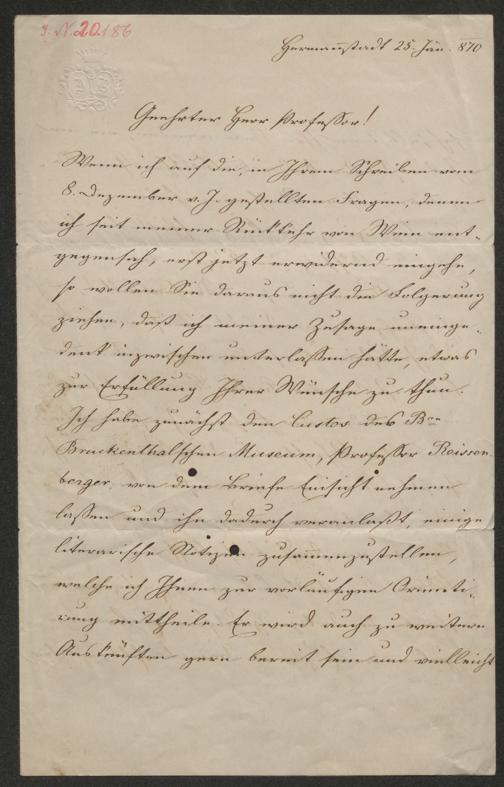 J. N. 20186
Hermannstadt 25. Jän. 870
Geehrter Herr Professor!
Wenn ich auf die, in Ihrem Schreiben vom
8. Dezember v. J. gestellten Fragen, denen
ich seit meiner Rückkehr von Wien ent-
gegensah, erst jetzt erwidernd eingehe,
so wollen Sie daraus nicht die Folgerung
ziehen, daß ich meiner Zusage uneinge-
denk inzwischen unterlassen hätte, etwas
zur Erfüllung Ihrer Wünsche zu thun.
Ich habe zunächst den Custos des Bar.
Bruckenthalschen Museum, Professor Reissen-
berger, von dem Briefe Einsicht nehmen
lassen und ihn dadurch veranlaßt, einige
literarische Notizen zusammenzustellen,
welche ich Ihnen zur vorläufigen Orienti-
rung mittheile. Er wird auch zu weitern
Auskünften gern bereit sein und vielleicht